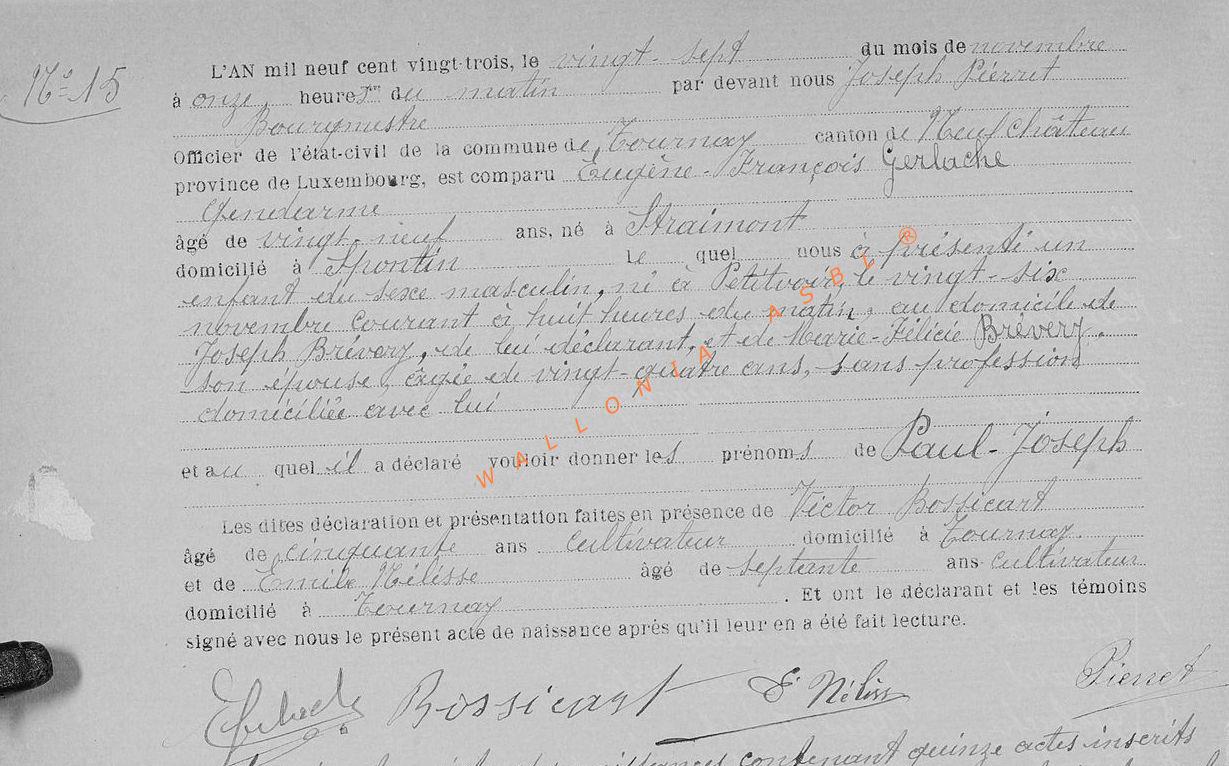 N° 15
L'AN mil neuf cent vingt-trois, le vingt-sept du mois de novembre
à onze heures du matin par devant nous Joseph Pierret
Bourgmestre
Officier de l'état-civil de la commune de Tournay canton de Neufchâteau
province de Luxembourg, est comparu Eugène-François Gerlache
Gendarme
âgé de vingt-neuf ans, né à Straimont
domicilié à Spontin le quel nous a présenté un
enfant du sexe masculin, né à Petitvoir, le vingt-six
novembre courant à huit heures du matin, au domicile de
Joseph Brévery, de lui déclarant, et de Marie-Félicie Brévery.
son épouse, âgée de vingt-quatre ans, sans profession
domiciliée avec lui
et au quel il a déclaré vouloir donner les prénoms de Paul-Joseph
Les dites déclaration et présentation faites en présence de Victor Bossicart
âgé de cinquante ans cultivateur domicilié à Tournay.
et de Emile Nélisse âgé de septante ans cultivateur
domicilié à Tournay. Et ont le déclarant et les témoins
signé avec nous le présent acte de naissance après qu'il leur en a été fait lecture.
Bossicart E Néliss Pierret
contenant quinze actes inscrits
WALLONIA ASBL ®